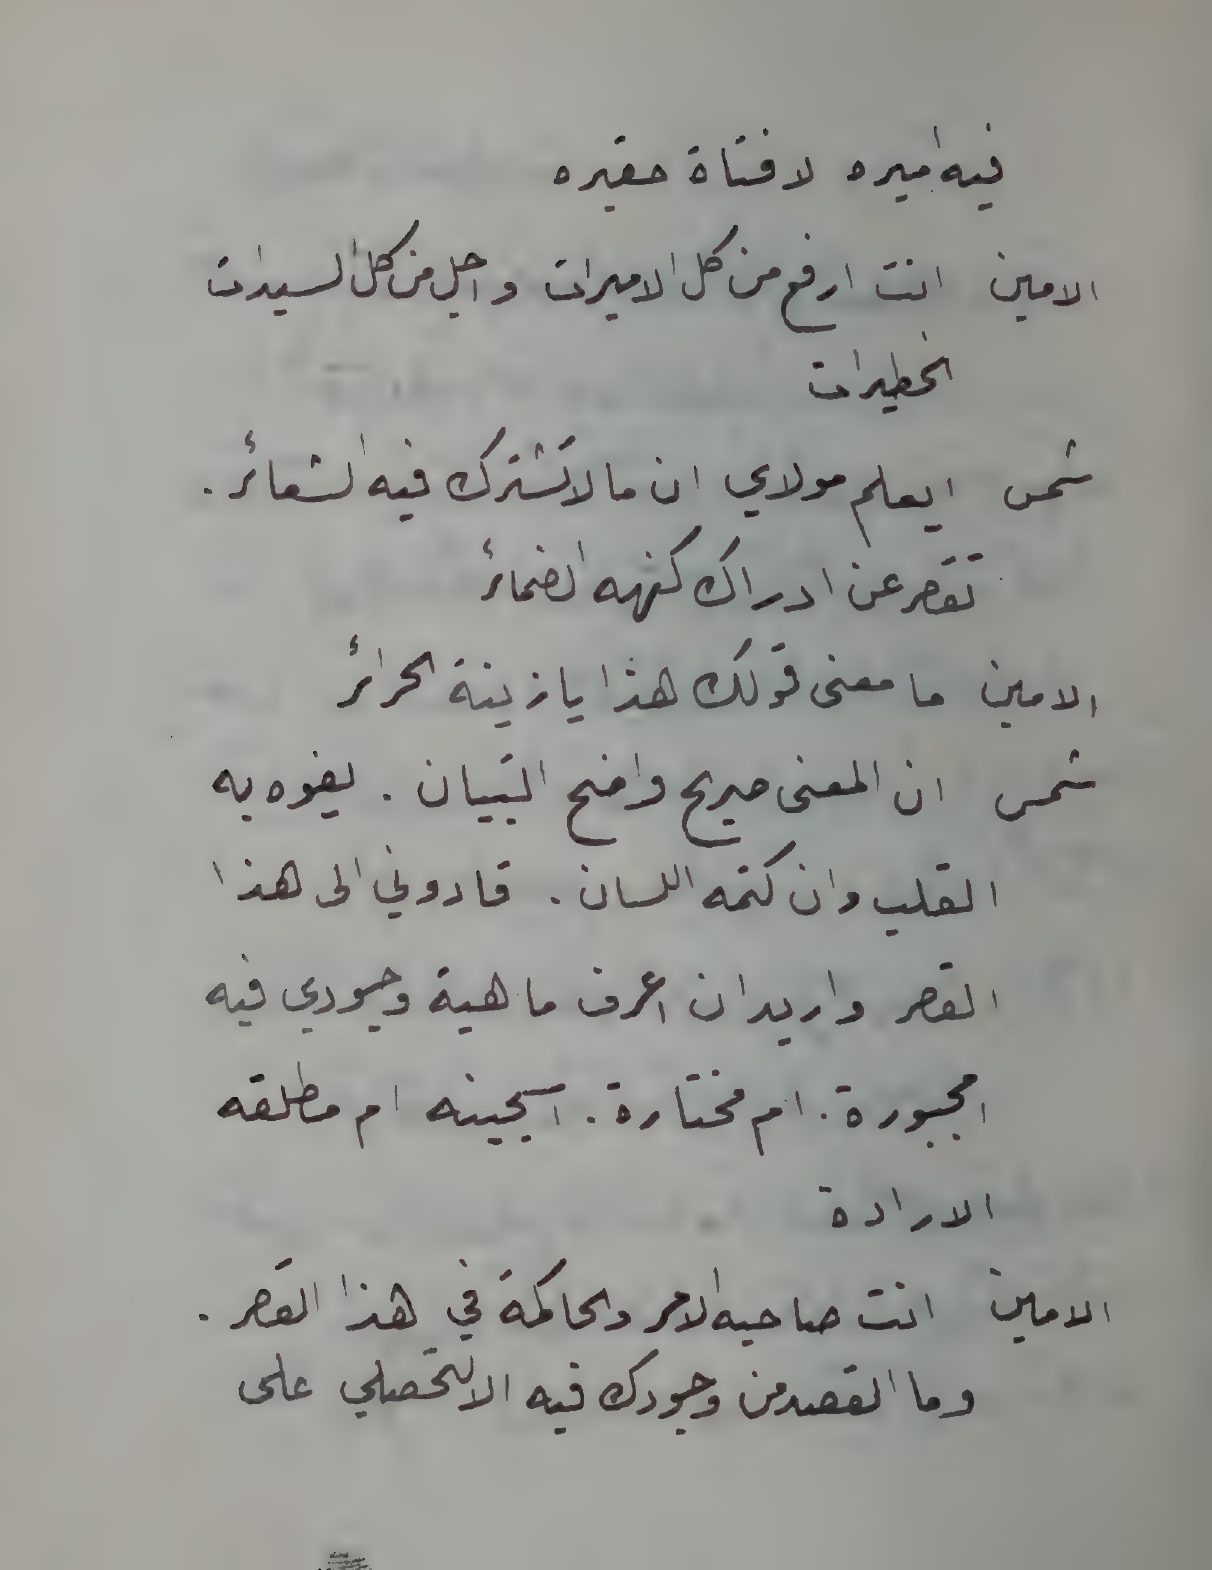 فيه اميره لا فتاة حقيره
الامين انت ارفع من كل الاميرات واجل من كل السيدات
الخطيرات
شمس ايعلم مولاي ان ما لا تشترك فيه الشعائر .
تقصر عن ادراك كنهه الضمائر
الامين ما معنى قولك هذا يا زينة الحرائر
شمس ان المعنى صريح واضح التبيان . يفوه به
القلب وان كتمه اللسان . قادوني الى هذا
القصر واريد ان اعرف ما هية وجودي فيه
امجبورة . ام مختارة . آسجينه ام مطلقه
الارادة
الامين انت صاحبه الامر والحاكمة في هذا القصر .
وما القصد من وجودك فيه الا لتحصلي على